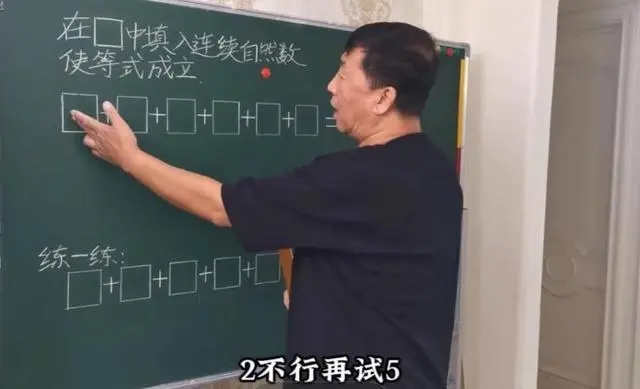 在□中填入连续自然数
使等式成立.
□+□+□+□+□+□=
练一练:
□+□+□+□+□
2不行再试5